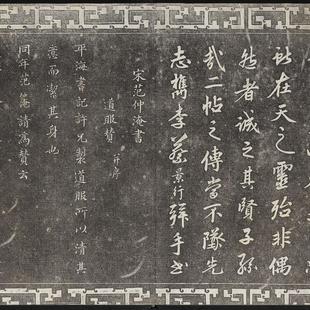 在天之靈殆非偶
然者誠之其賢子孫
哉二帖之傳當不墜先
志檇李蔡景行拜手書
宋范仲淹書
道服贊 并序
平海書記許兄製道服所以清其
意而潔其身也
同年范仲淹請為贊云